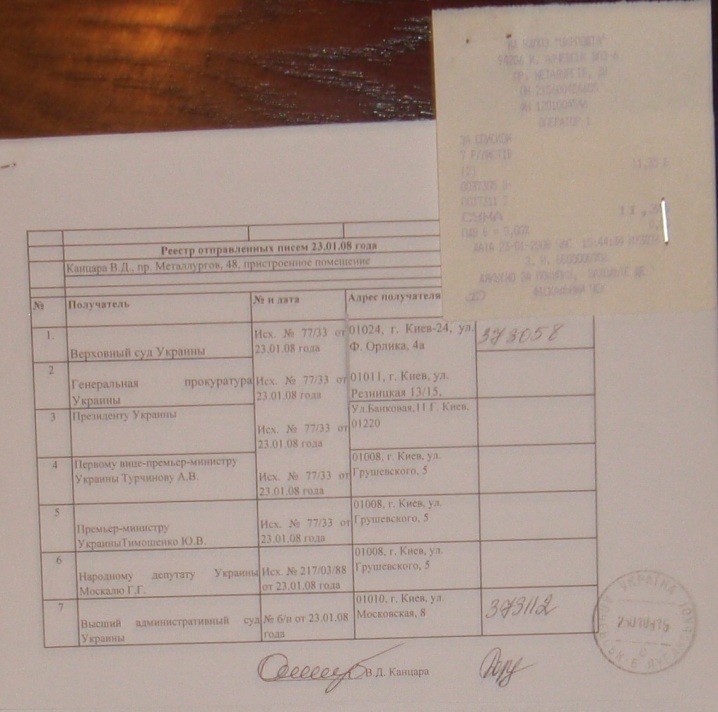 ПР. МЕТАЛУРГІВ,
ОПЕРАТОР 1
СУМА
ДАТА 23-01-2008 ЧАС
ФІСКАЛЬНИЙ ЧЕК
Реестр отправленных писем 23.01.08 года
Канцара В.Д., пр. Металлургов, 48, пристроенное помещение
№ Получатель № и дата Адрес получателя
1. Верховный суд Украины Исх. № 77/33 от 23.01.08 года 01024, г. Киев-24, ул. Ф. Орлика, 4а 373058
2 Генеральная прокуратура Украины Исх. № 77/33 от 23.01.08 года 01011, г. Киев, ул. Резницкая 13/15,
3 Президенту Украины Исх. № 77/33 от 23.01.08 года Ул.Банковая,11 Г. Киев, 01220
4 Первому вице-премьер-министру Украины Турчинову А.В. Исх. № 77/33 от 23.01.08 года 01008, г. Киев, ул. Грушевского, 5
5 Премьер-министру УкраиныТимошенко Ю.В. Исх. № 77/33 от 23.01.08 года 01008, г. Киев, ул. Грушевского, 5
6 Народному депутату Украины Москалю Г.Г. Исх. № 217/03/88 от 23.01.08 года 01008, г. Киев, ул. Грушевского, 5
7 Высший административный суд Украины № б/н от 23.01.08 года 01010, г. Киев, ул. Московская, 8 373112
УКРАЇНА
В.Д. Канцара